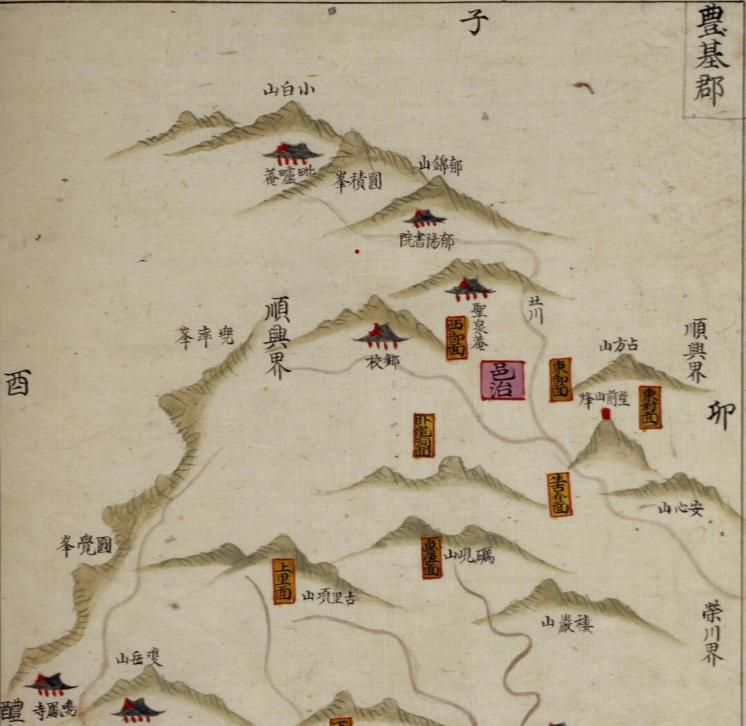 豊基郡
子
小白山
毗曥菴
圓積峯
郁錦山
郁陽書院
聖泉菴
北川
順興界
兜率峯
鄕校
西部面
邑治
東部面
占方山
順興界
望前山烽
東村面
卯
酉
卧龍洞面
生古介面
安心山
圓覺峯
上里面
古里項山
魯佐面
礪峴山
榮川界
樓巖山
雙岳山
鳴鳳寺
醴
下